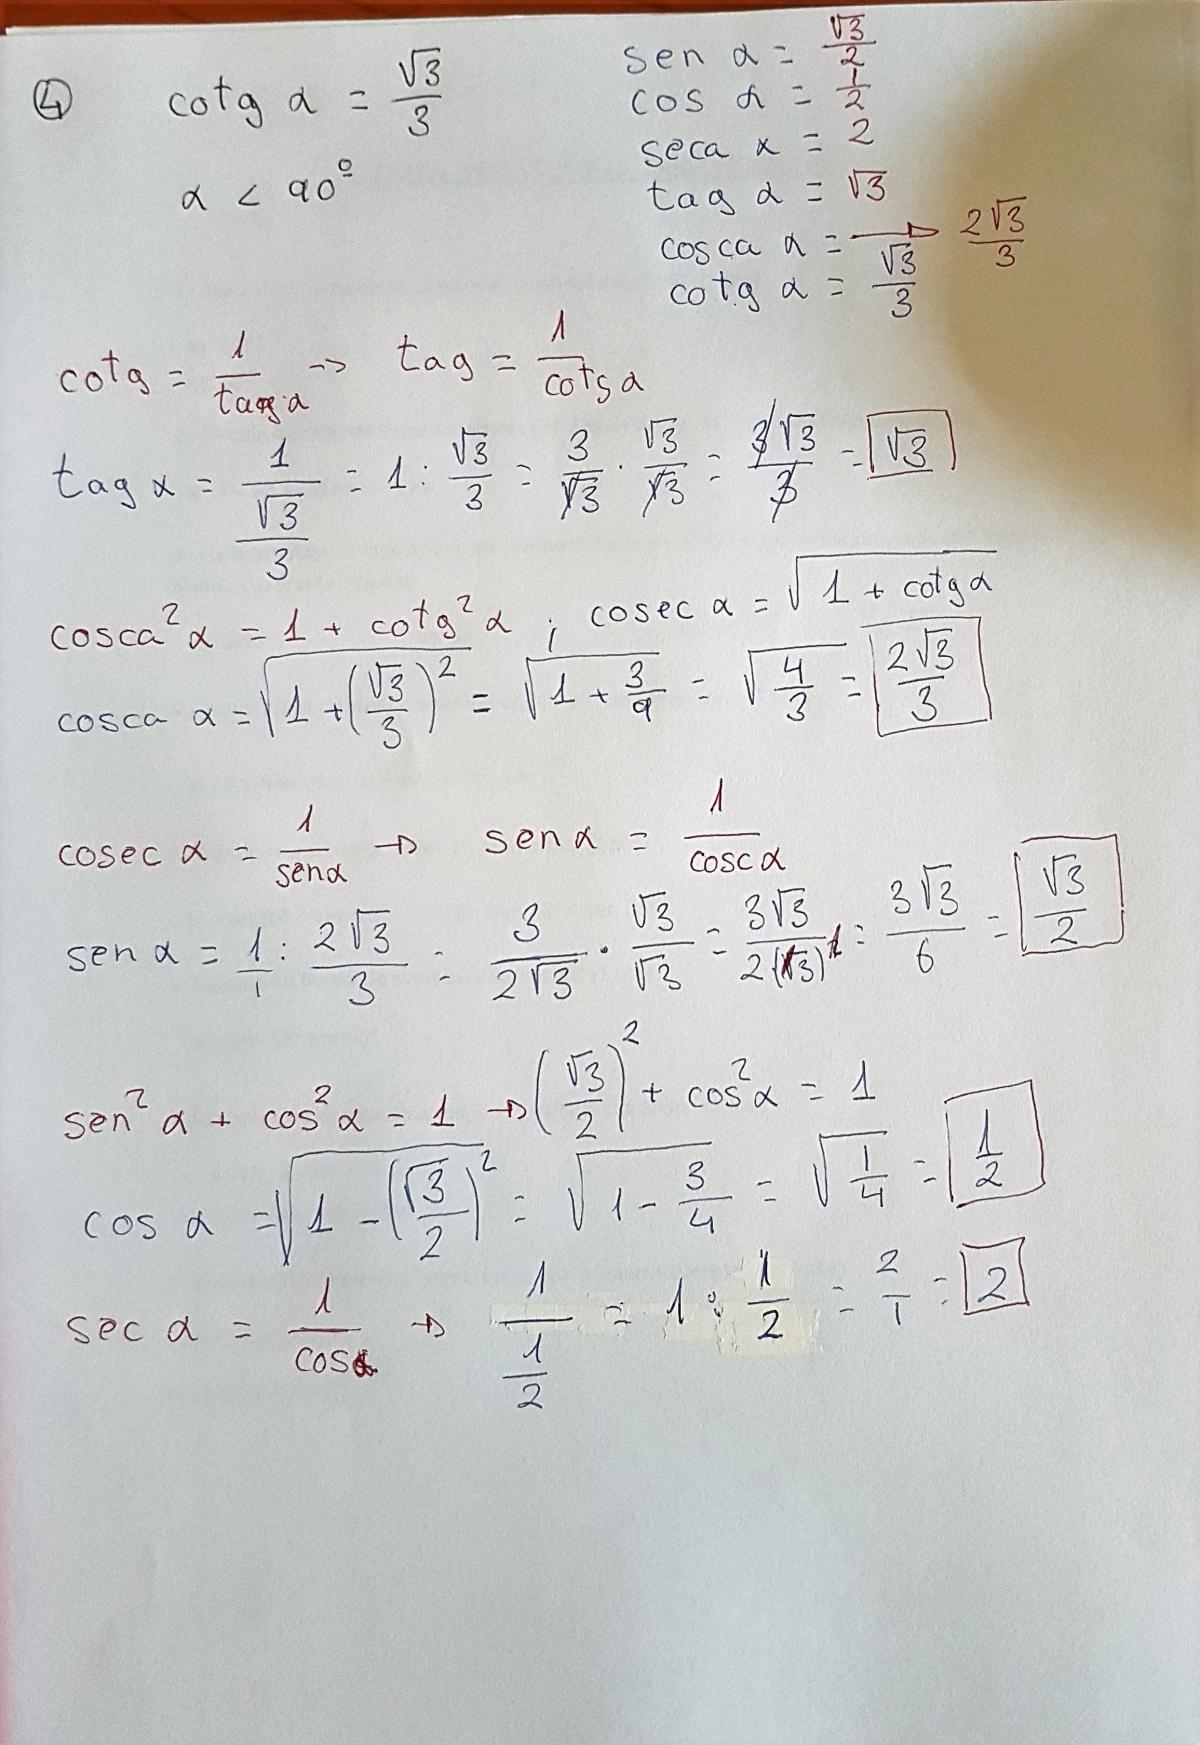 ④ cotg α = √3/3
α < 90º
sen α = √3/2
cos α = 1/2
seca α = 2
tag α = √3
cosca α = → 2√3/3
cotg α = √3/3
cotg = 1/tag α → tag = 1/cotg α
tag α = 1/(√3/3) = 1 : √3/3 = 3/√3 · √3/√3 = 3√3/3 = √3
cosca² α = 1 + cotg² α ; cosec α = √(1 + cotg α)
cosca α = √(1 + (√3/3)²) = √(1 + 3/9) = √(4/3) = 2√3/3
cosec α = 1/sen α → sen α = 1/cosc α
sen α = 1/1 : 2√3/3 = 3/2√3 · √3/√3 = 3√3/2(√3)² = 3√3/6 = √3/2
sen² α + cos² α = 1 → (√3/2)² + cos² α = 1
cos α = √(1 - (√3/2)²) = √(1 - 3/4) = √(1/4) = 1/2
sec α = 1/cos α → 1/(1/2) = 1 : 1/2 = 2/1 = 2